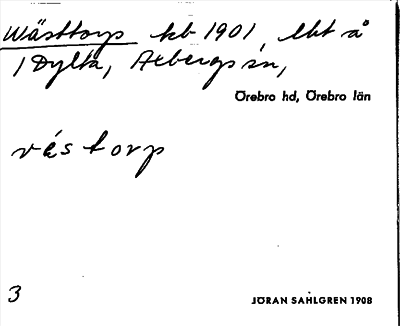 Wästtorp kb 1901, lht å
1 Dylta, Axbergs sn,
Örebro hd, Örebro län
västorp
3
JÖRAN SAHLGREN 1908